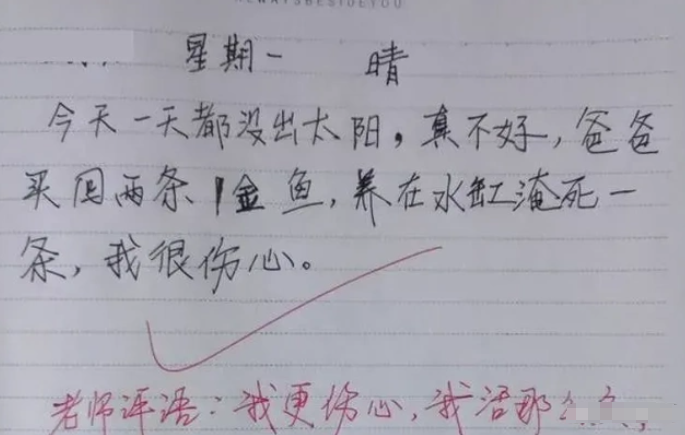 ALWAYSBESIDEYOU
星期一 晴
今天一天都没出太阳，真不好，爸爸
买回两条金鱼，养在水缸淹死一
条，我很伤心。
老师评语：我更伤心，我活那